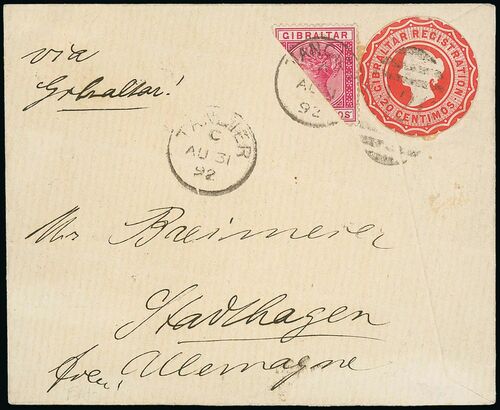 via
Gibraltar!
GIBRALTAR
OS
GIBRALTAR REGISTRATION
20 CENTIMOS
TANG
AU
92
TANGIER
C
AU 31
92
Mr Breimeier
Stadthagen
Allemagne